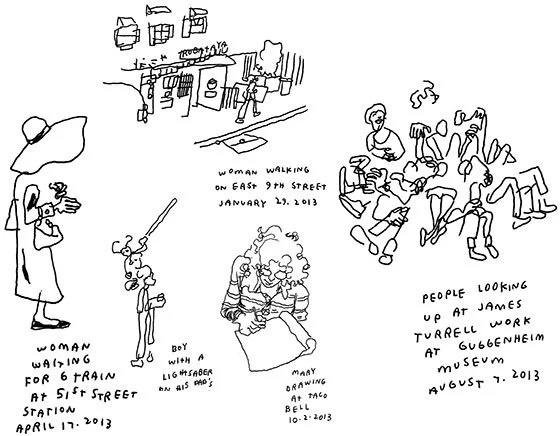 WOMAN WALKING
ON EAST 9TH STREET
JANUARY 29. 2013
WOMAN
WAITING
FOR 6 TRAIN
AT 51ST STREET
STATION
APRIL 17. 2013
BOY
WITH A
LIGHTSABER
ON HIS DAD'S
MARY
DRAWING
AT TACO
BELL
10.2.2013
PEOPLE LOOKING
UP AT JAMES
TURRELL WORK
AT GUGGENHEIM
MUSEUM
AUGUST 7. 2013